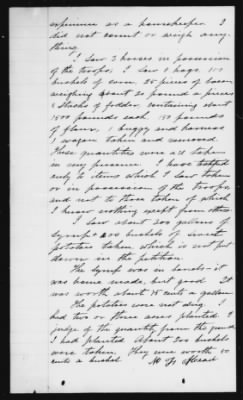 experience as a housekeeper. I
did not count or weigh any-
thing.
I saw 2 horses in possession
of the troops, I saw 1 hogs, 110
bushels of corn. 25 pieces of bacon
weighing about 20 pounds a piece
6 stacks of fodder, containing about
1500 pounds each 150 pounds
of flour, 1 buggy and harness
1 wagon taken and removed.
These quantities were all taken
in my presence. I have testified
only to items which I saw taken
or in possession of the troops
and not to those taken of which
I know nothing except from others
I saw about 200 gallons of
syrup & 200 bushels of sweet
potatoes taken which is not put
down in the petition.
The syrup was in barrels - it
was home made, but good. It
was worth about 75 cents a gallon.
The potatoes were not dug. I
had two or three acres planted. I
judge of the quantity from the ground
I had planted. About 200 bushels
were taken. They were worth 50
cents a bushel.